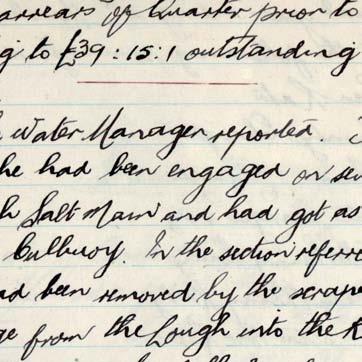 arrears of Quarter prior to
g to £39:15:1 outstanding
Water Manager reported.
he had been engaged on
h Salt Main and had got as
Culbuoy. In the section referre
ad been removed by the scrape
ge from the Lough into the